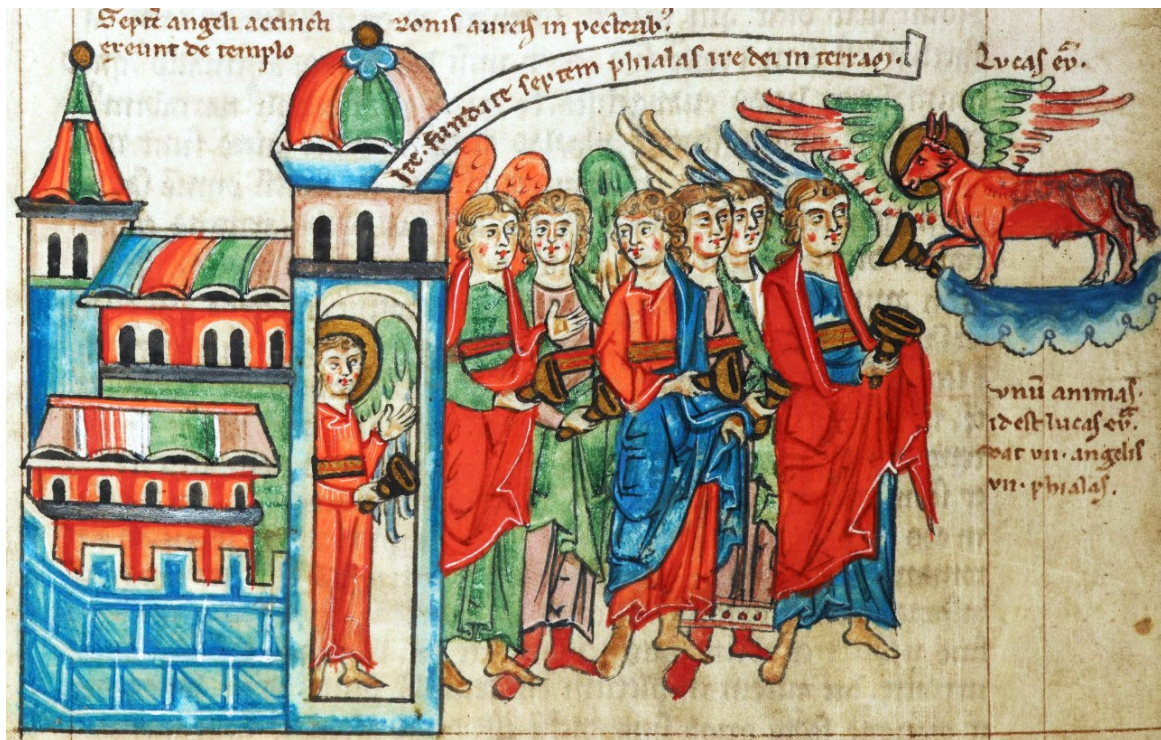 Septē angeli accincti zonis aureis in pectorib⁹
exeunt de templo
Ite. fundite septem phialas ire dei in terram.
Lucas eṽ.
vnū animal.
id est lucas eṽ.
dat vii. angelis
vii. phialas.